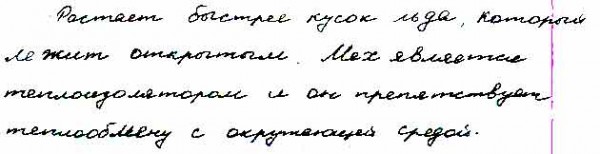 Растает быстрее кусок льда, который
лежит открытым. Мех является
теплоизолятором и он препятствует
теплообмену с окружающей средой.